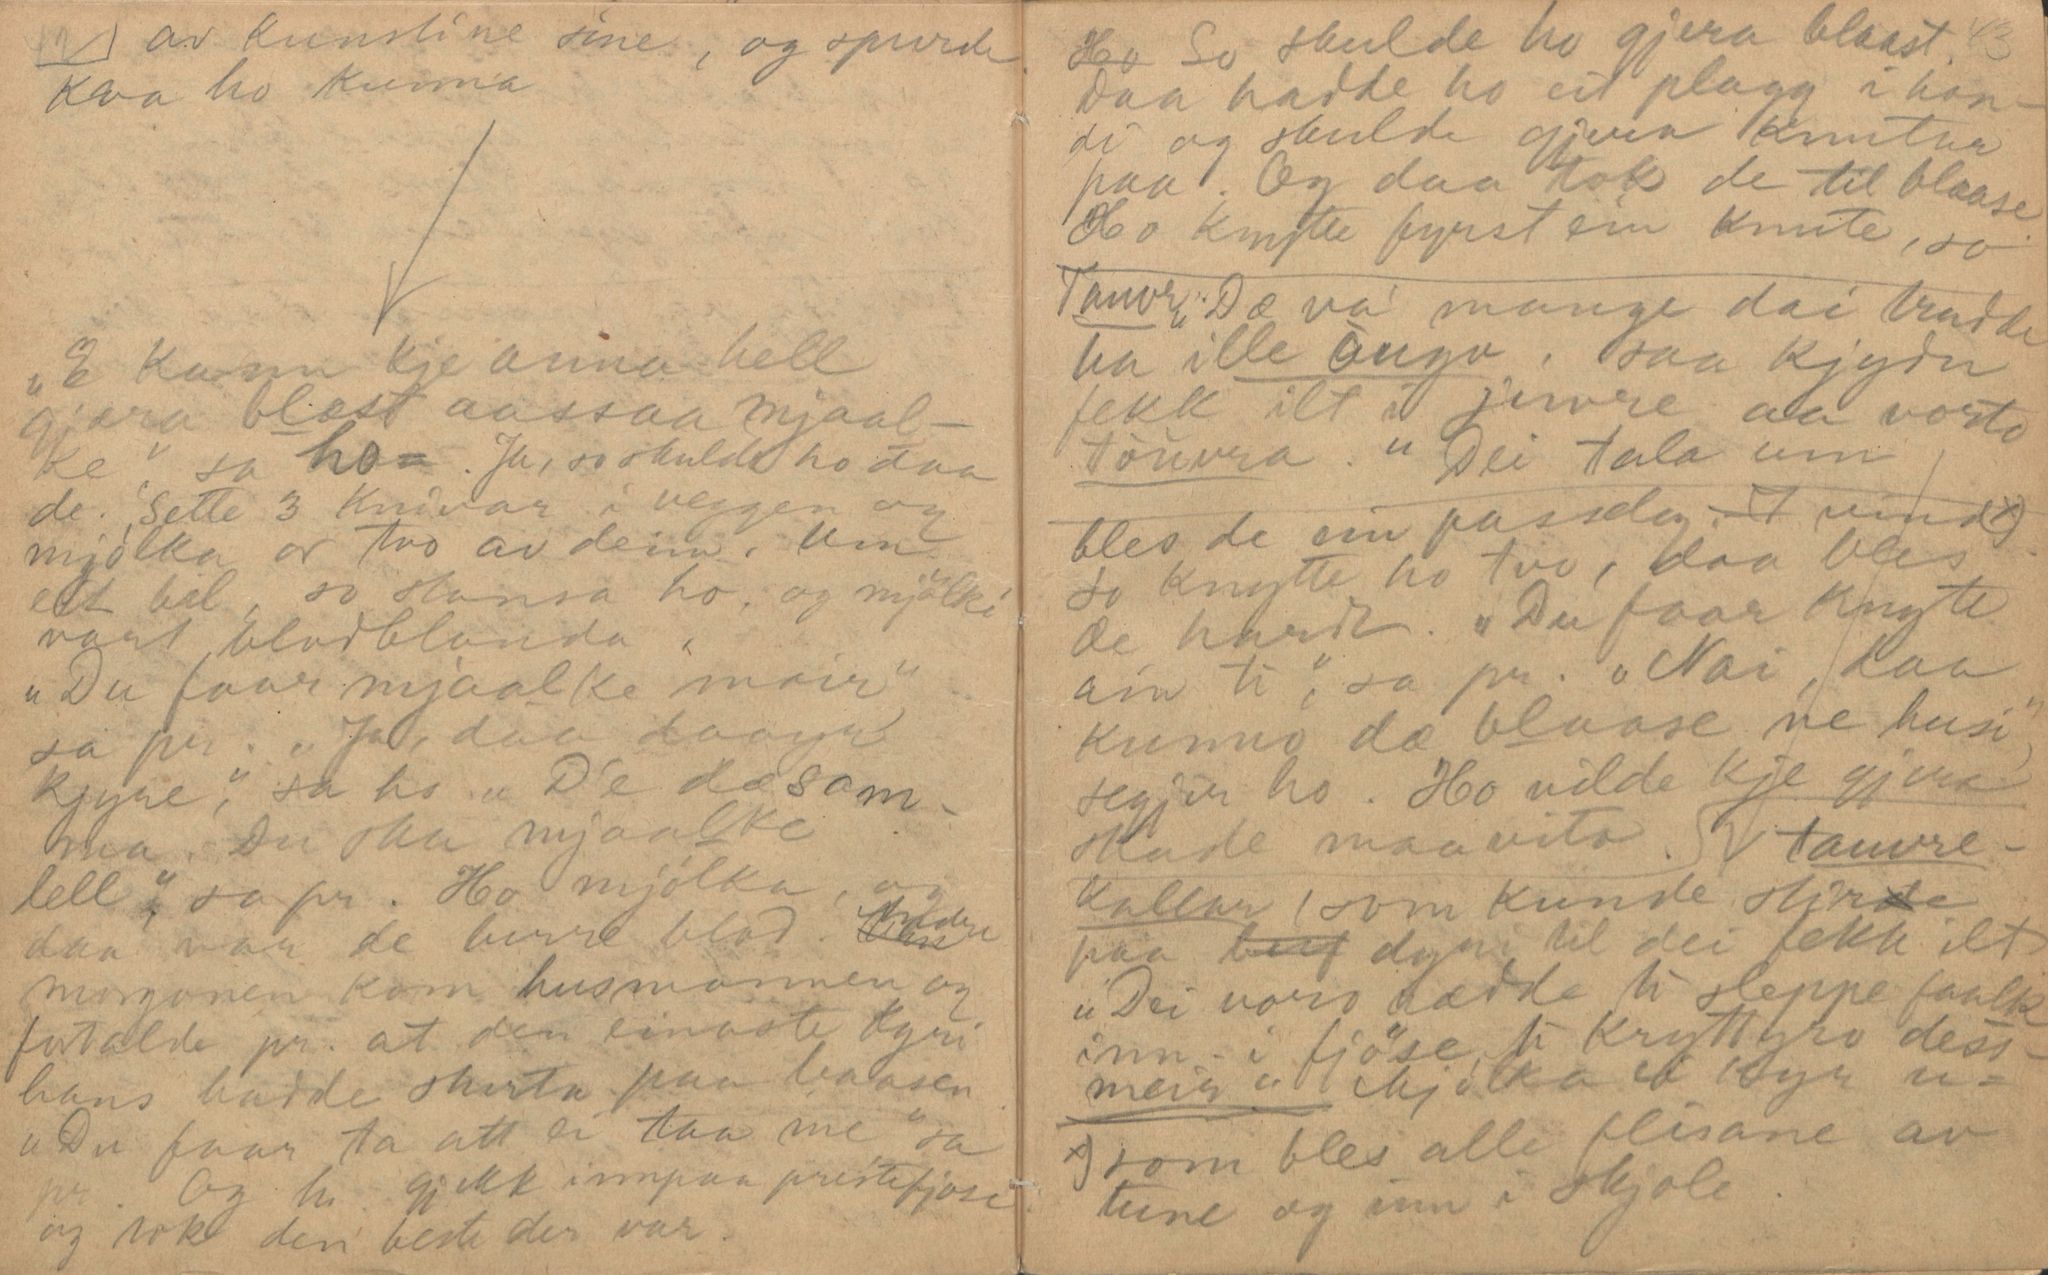 av kunstine sine, og spurde
kva ho kunna
„E kann kje anna hell
gjæra blæst aassaa mjaal-
ke", sa ho. Ja, so skulde ho daa
de. Sette 3 knivar i veggen og
mjølka or tvo av deim. Um
eit bil, so stansa ho, og mjølki
vart blodblanda.
„Du faar mjaalke meir"
sa pr. „Ja, daa daayr
kjyre", sa ho „D'e dæ sam-
ma. Du ska mjaalke
lell", sa pr. Ho mjølka, og
daa var de berre blod. Andre
morgonen kom husmannen og
fortalde pr. at den einaste kyri
hans hadde styrta paa baasen.
„Du faar ta att ei taa me" sa
pr. Og h. gjekk innpaa prestefjøse
og tok den beste der var.
43
Ho So skulde ho gjera blaast.
Daa hadde ho eit plagg i hon-
di og skulde gjera knutar
paa. Og daa tok de til blaase.
Ho knytte fyrst ein knute, so
Tauvr „Dæ va mange dai trudde
ha ille augo, saa kjydn
fekk ilt i juvre aa vorto
tauvra." Dei tala um
bles de ein passeleg vind x).
so knytte ho tvo, daa bles
de hardt. „Du faar knyte
ain ti", sa pr. „Nai, daa
kunno dæ blaase ne husi",
segjer ho. Ho vilde kje gjera
skade maavita. tauvre-
kallar, som kunde stira
paa dyri til dei fekk ilt
„Dei voro rædde ti sleppe faalk
inn i fjøse, ti kryttyro dess-
meir" Mjølka ei kyr u-
x) som bles alle flisane av
tune og inn i skjole.